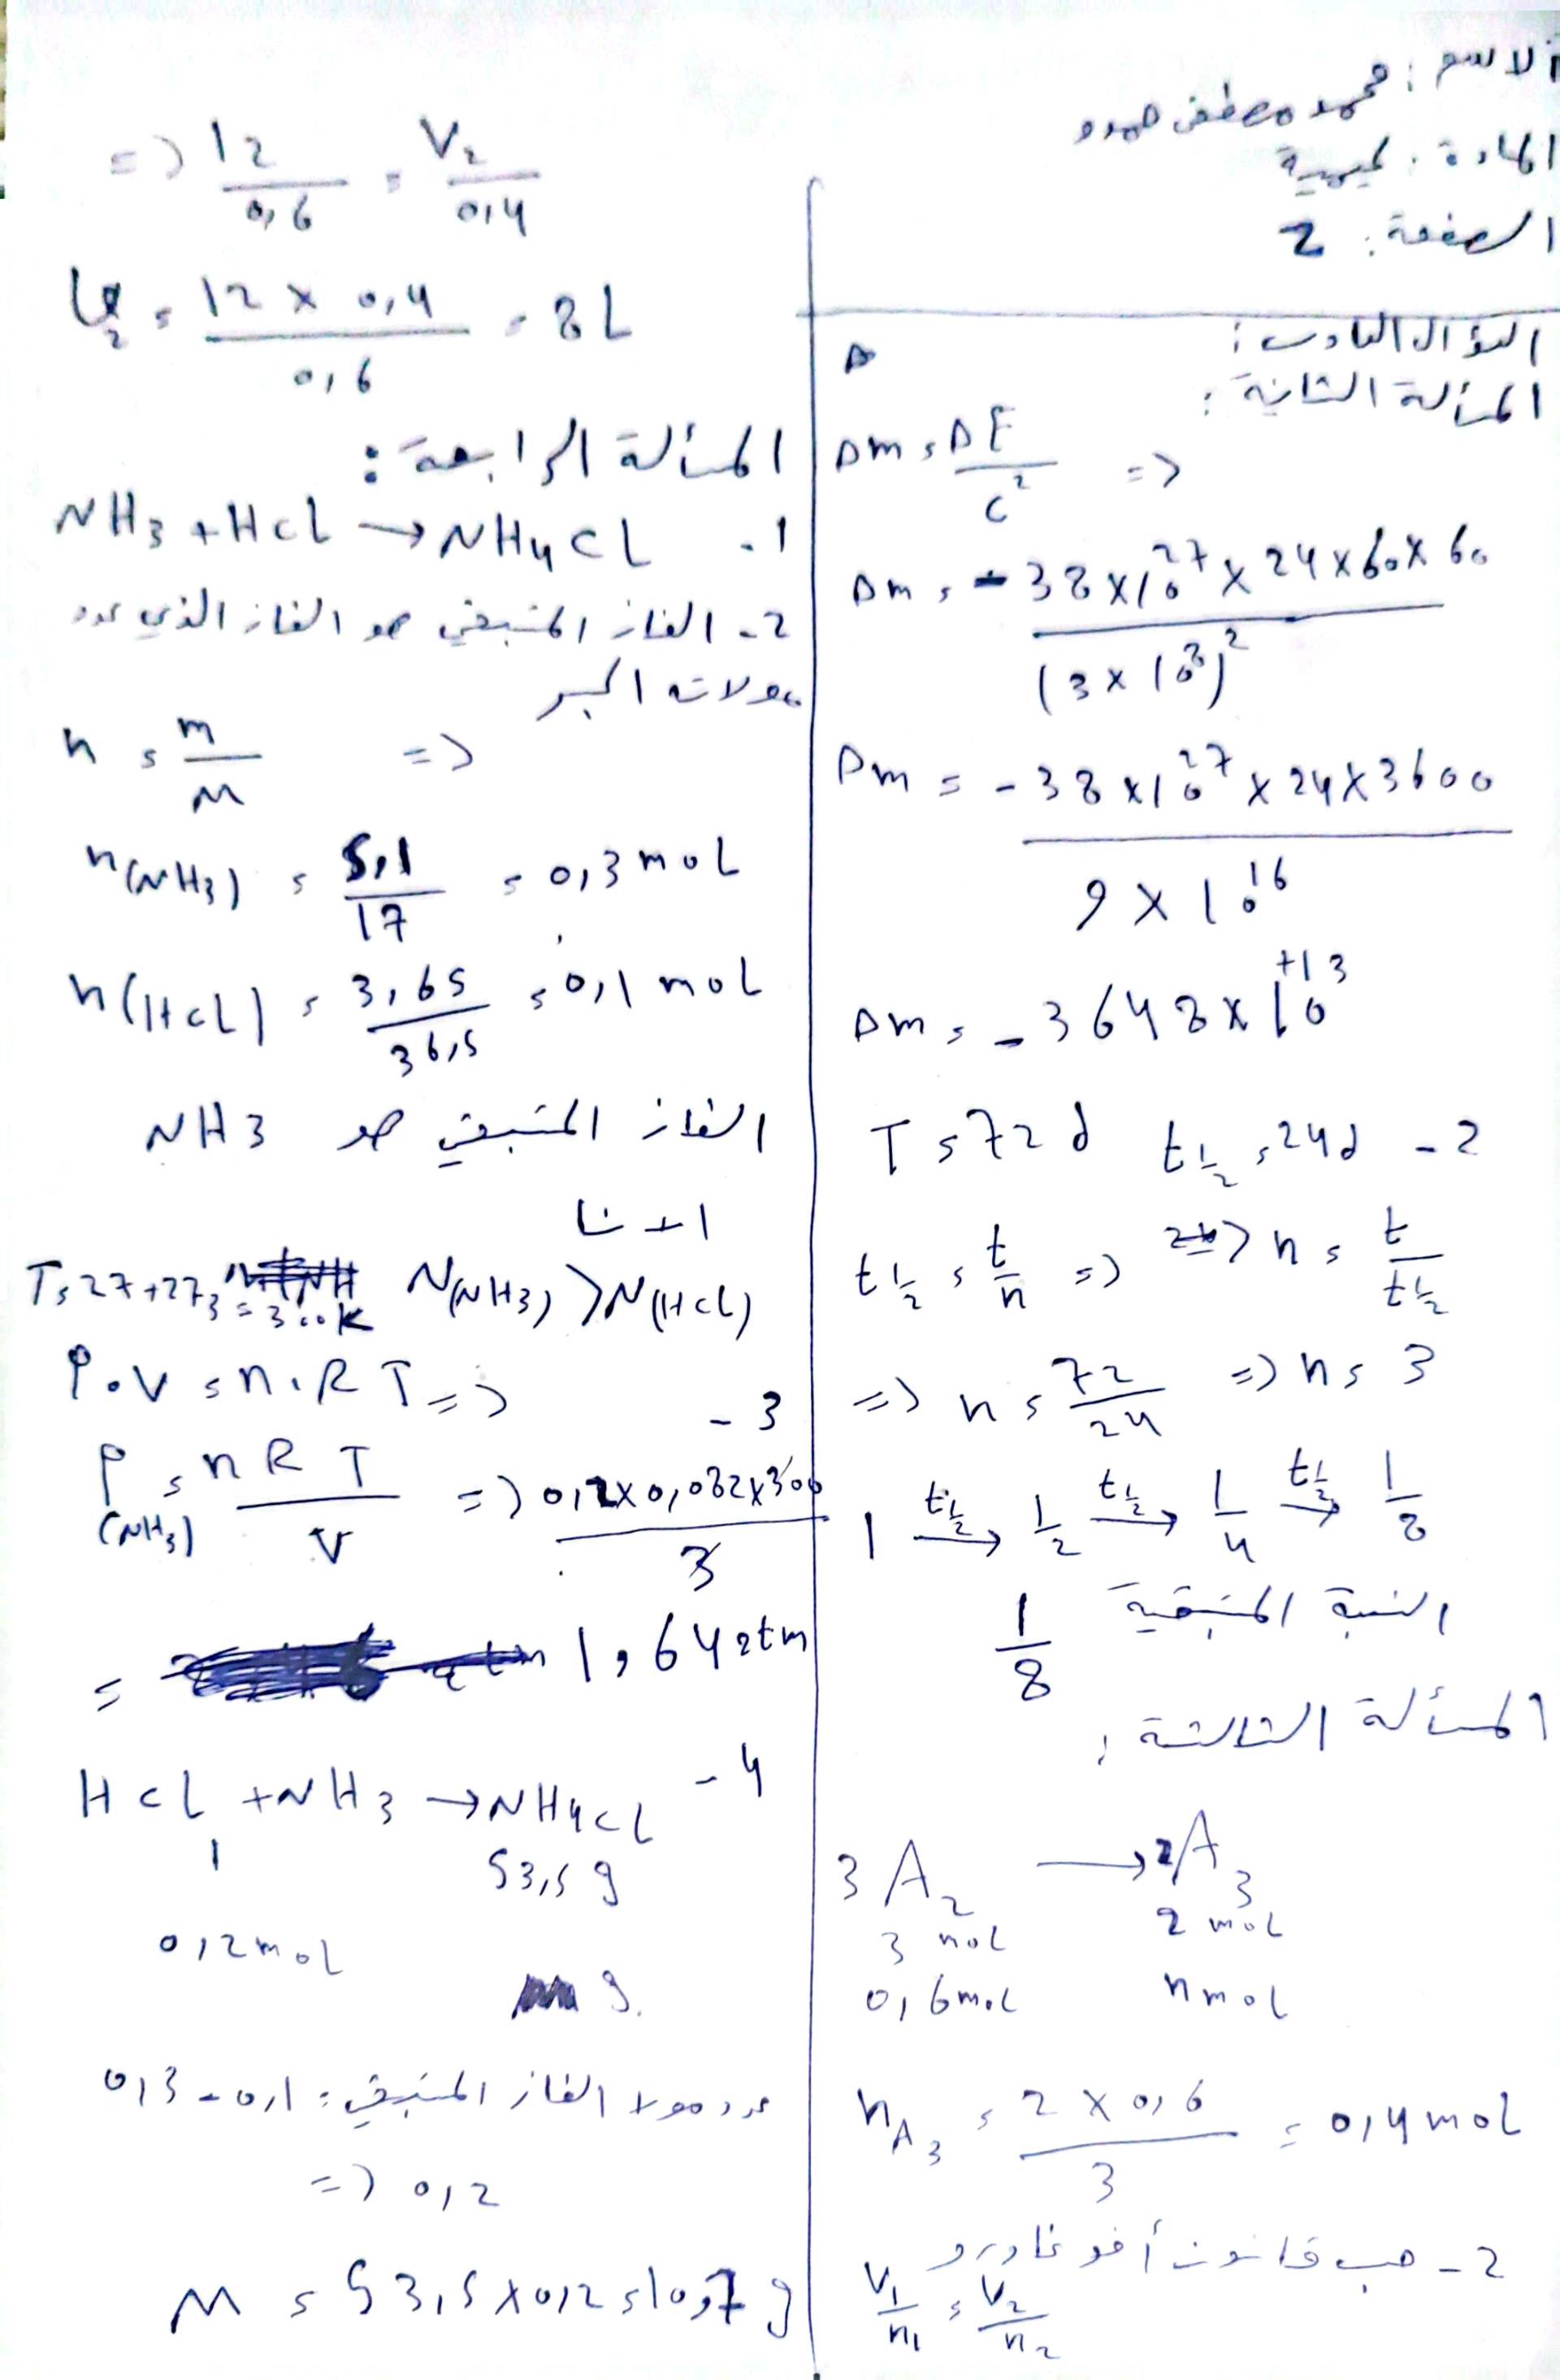 الاسم: محمد مصطفى حمدو
المادة: كيمياء
الصفحة: 2
السؤال السادس:
المسألة الثانية:
Δm = ΔE / c² =>
Δm = - 38 × 10²⁷ × 24 × 60 × 60 / (3 × 10⁸)²
Δm = - 38 × 10²⁷ × 24 × 3600 / 9 × 10¹⁶
Δm = - 3648 × 10⁺¹³
T = 72 d t½ = 24 d - 2
t½ = t / n => n = t / t½
=> n = 72 / 24 => n = 3
1 t½→ 1/2 t½→ 1/4 t½→ 1/8
النسبة المتبقية 1/8
المسألة الثالثة:
3 A₂ → 2 A₃
3 mol 2 mol
0,6 mol n mol
n A₃ = 2 × 0,6 / 3 = 0,4 mol
2 - حسب قانون أفوغادرو
V₁ / n₁ = V₂ / n₂
=> 12 / 0,6 = V₂ / 0,4
V₂ = 12 × 0,4 / 0,6 = 8 L
المسألة الرابعة:
NH₃ + HCl → NH₄Cl - 1
2 - الغاز المتبقي هو الغاز الذي عدد
مولاته اكبر
n = m / M =>
n(NH₃) = 5,1 / 17 = 0,3 mol
n(HCl) = 3,65 / 36,5 = 0,1 mol
الغاز المتبقي هو NH3
لأننا
N(NH₃) > N(HCl)
T = 27 + 273 = 300 K
P . V = n . R T => - 3
P(NH₃) = n R T / V => 0,2 × 0,082 × 300 / 3
= 1,64 atm
HCl + NH₃ → NH₄Cl - 4
1 53,5 g
0,2 mol g.
عدد مولا الغاز المتبقي: 0,3 - 0,1
=> 0,2
M = 53,5 × 0,2 = 10,7 g